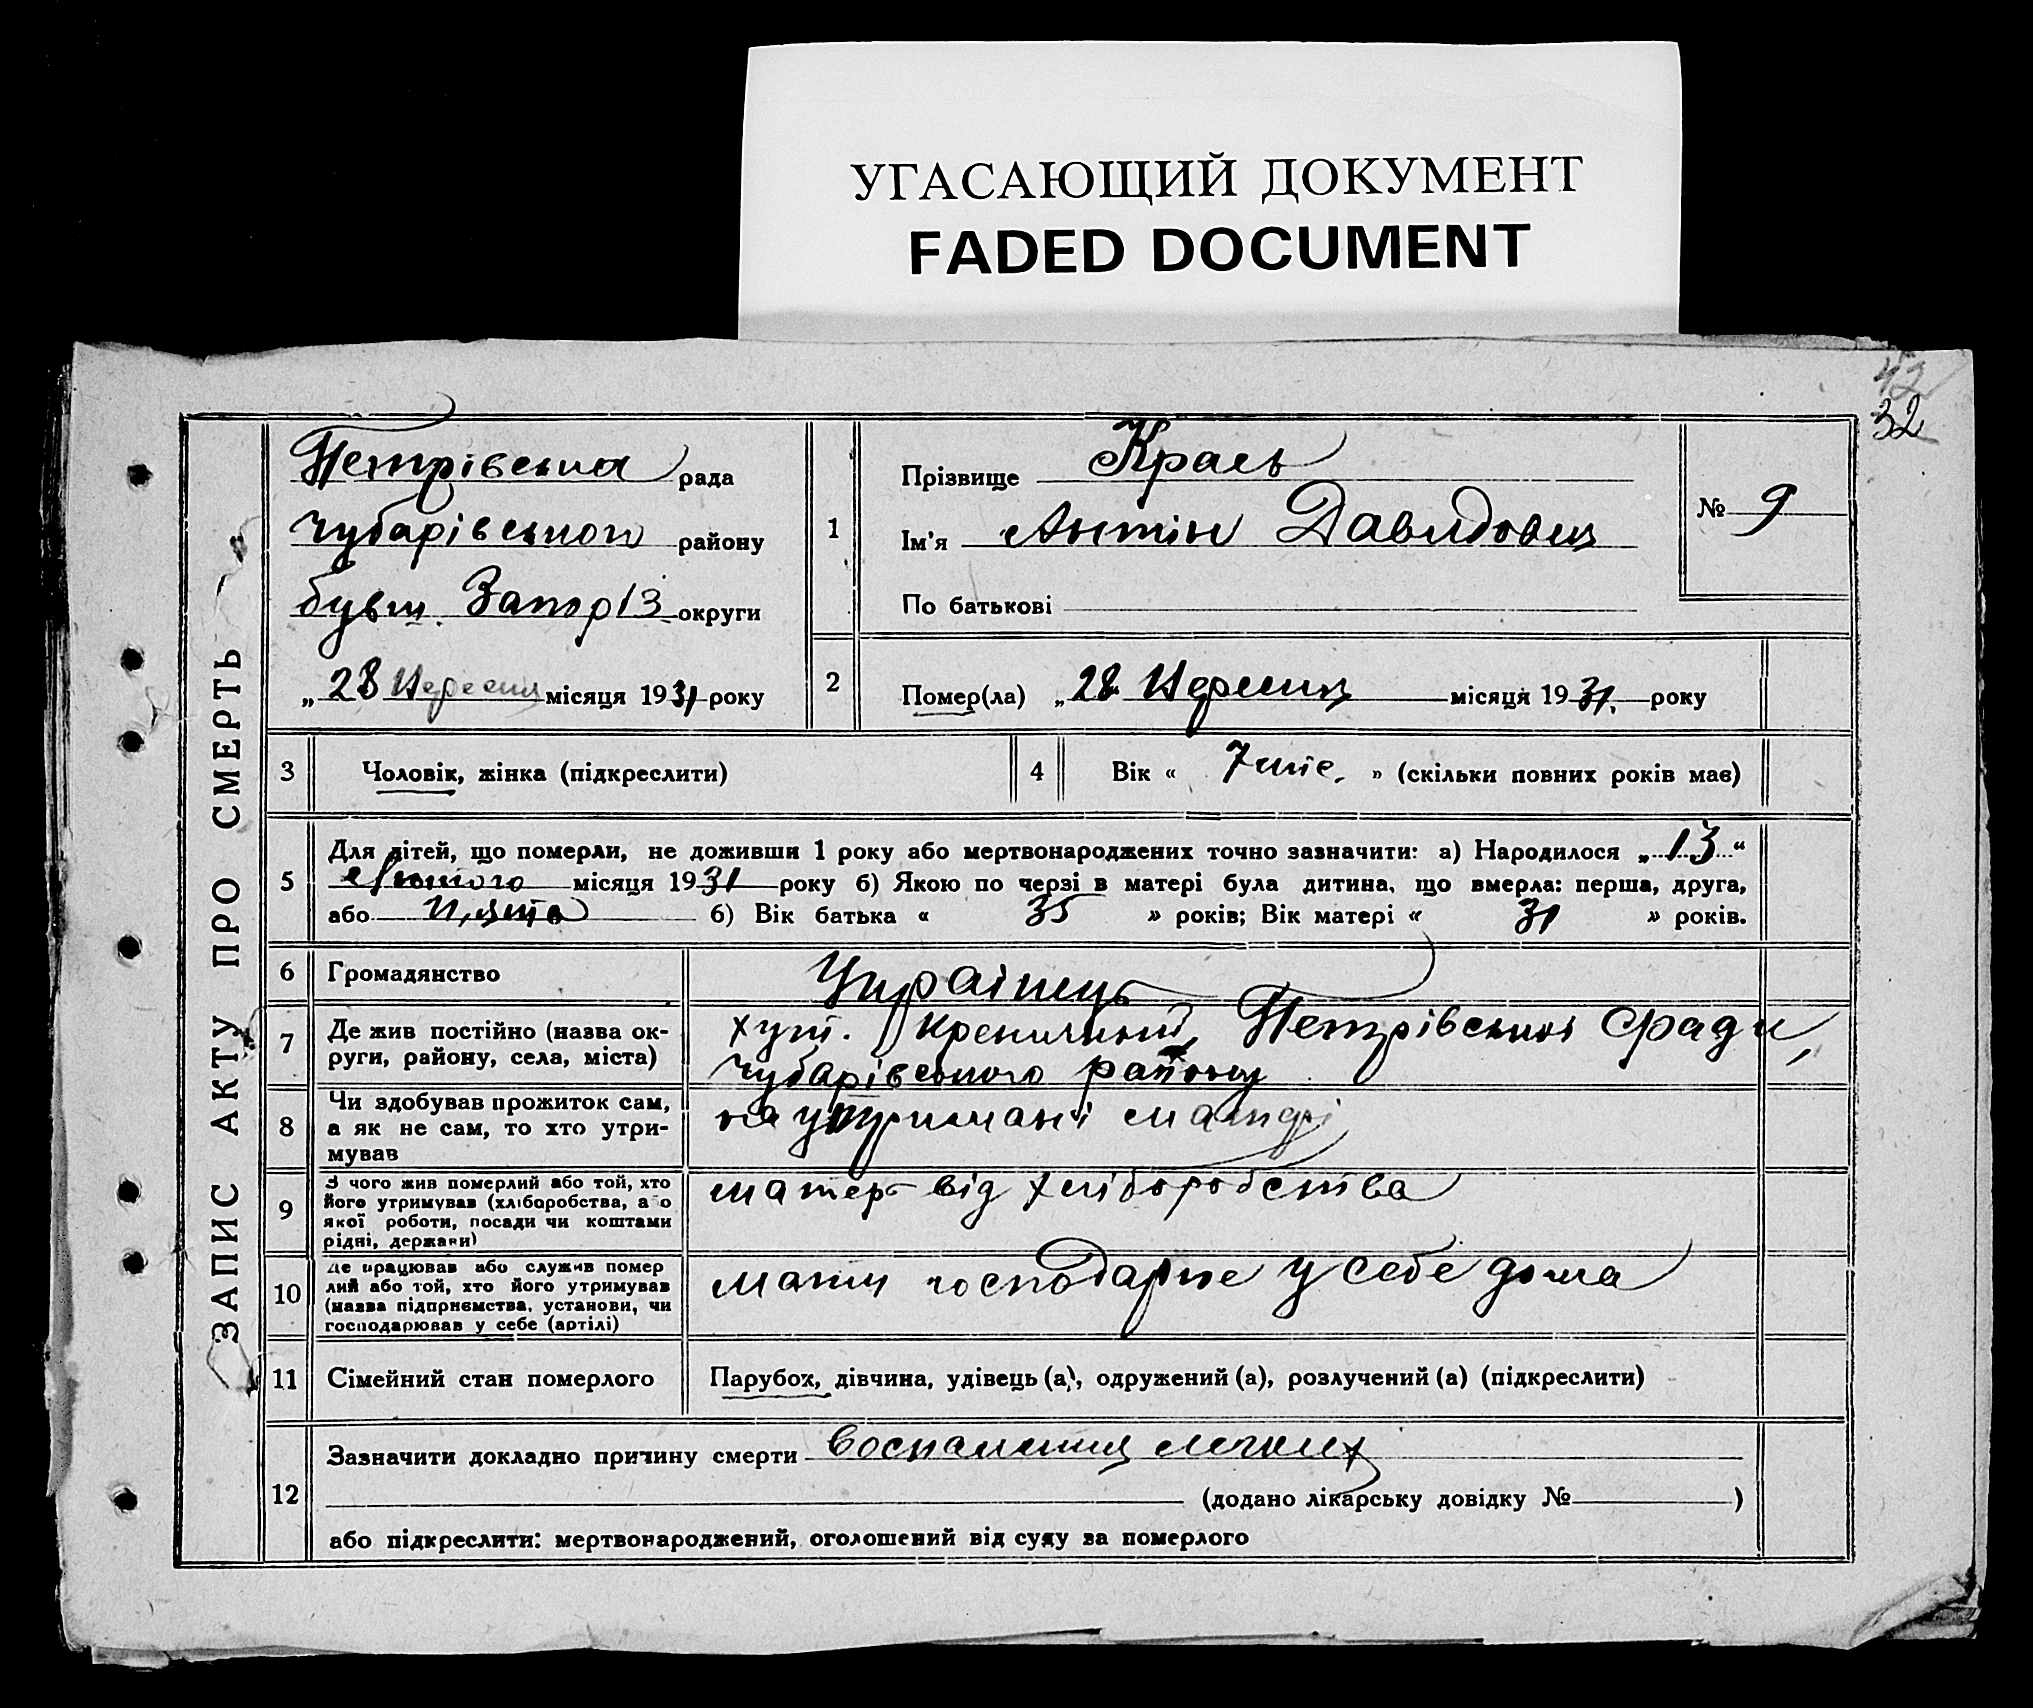 УГАСАЮЩИЙ ДОКУМЕНТ
FADED DOCUMENT
42
32
ЗАПИС АКТУ ПРО СМЕРТЬ
Петрівська рада
Чубарівського району
бувш. Запоріз округи
„ 28 Вересня місяця 1931 року
1
Прізвище Краєв
Ім'я Антін Давидович
По батькові
№ 9
2
Помер(ла) „ 28 Вересня місяця 1931. року
3 Чоловік, жінка (підкреслити)
4 Вік « 7 міс. » (скільки повних років має)
5 Для дітей, що померли, не доживши 1 року або мертвонароджених точно зазначити: а) Народилося „ 13 “
Лютого місяця 1931 року б) Якою по черзі в матері була дитина, що вмерла: перша, друга,
або п'ята б) Вік батька « 35 » років; Вік матері « 31 » років.
6 Громадянство Українець
7 Де жив постійно (назва ок-
руги, району, села, міста)
хут. Петрівської Сради,
Чубарівського району
8 Чи здобував прожиток сам,
а як не сам, то хто утри-
мував
на утримані матері
9 З чого жив померлий або той, хто
його утримував (хліборобства, або
якої роботи, посади чи коштами
рідні, держави)
матер від хліборобства
10 Де працював або служив помер
лий або той, хто його утримував
(назва підприємства, установи, чи
господарював у себе (артілі)
мати господарює у себе дома
11 Сімейний стан померлого Парубок, дівчина, удівець (а), одружений (а), розлучений (а) (підкреслити)
12 Зазначити докладно причину смерти воспаления легких
(додано лікарську довідку № )
або підкреслити: мертвонароджений, оголошений від суду за померлого